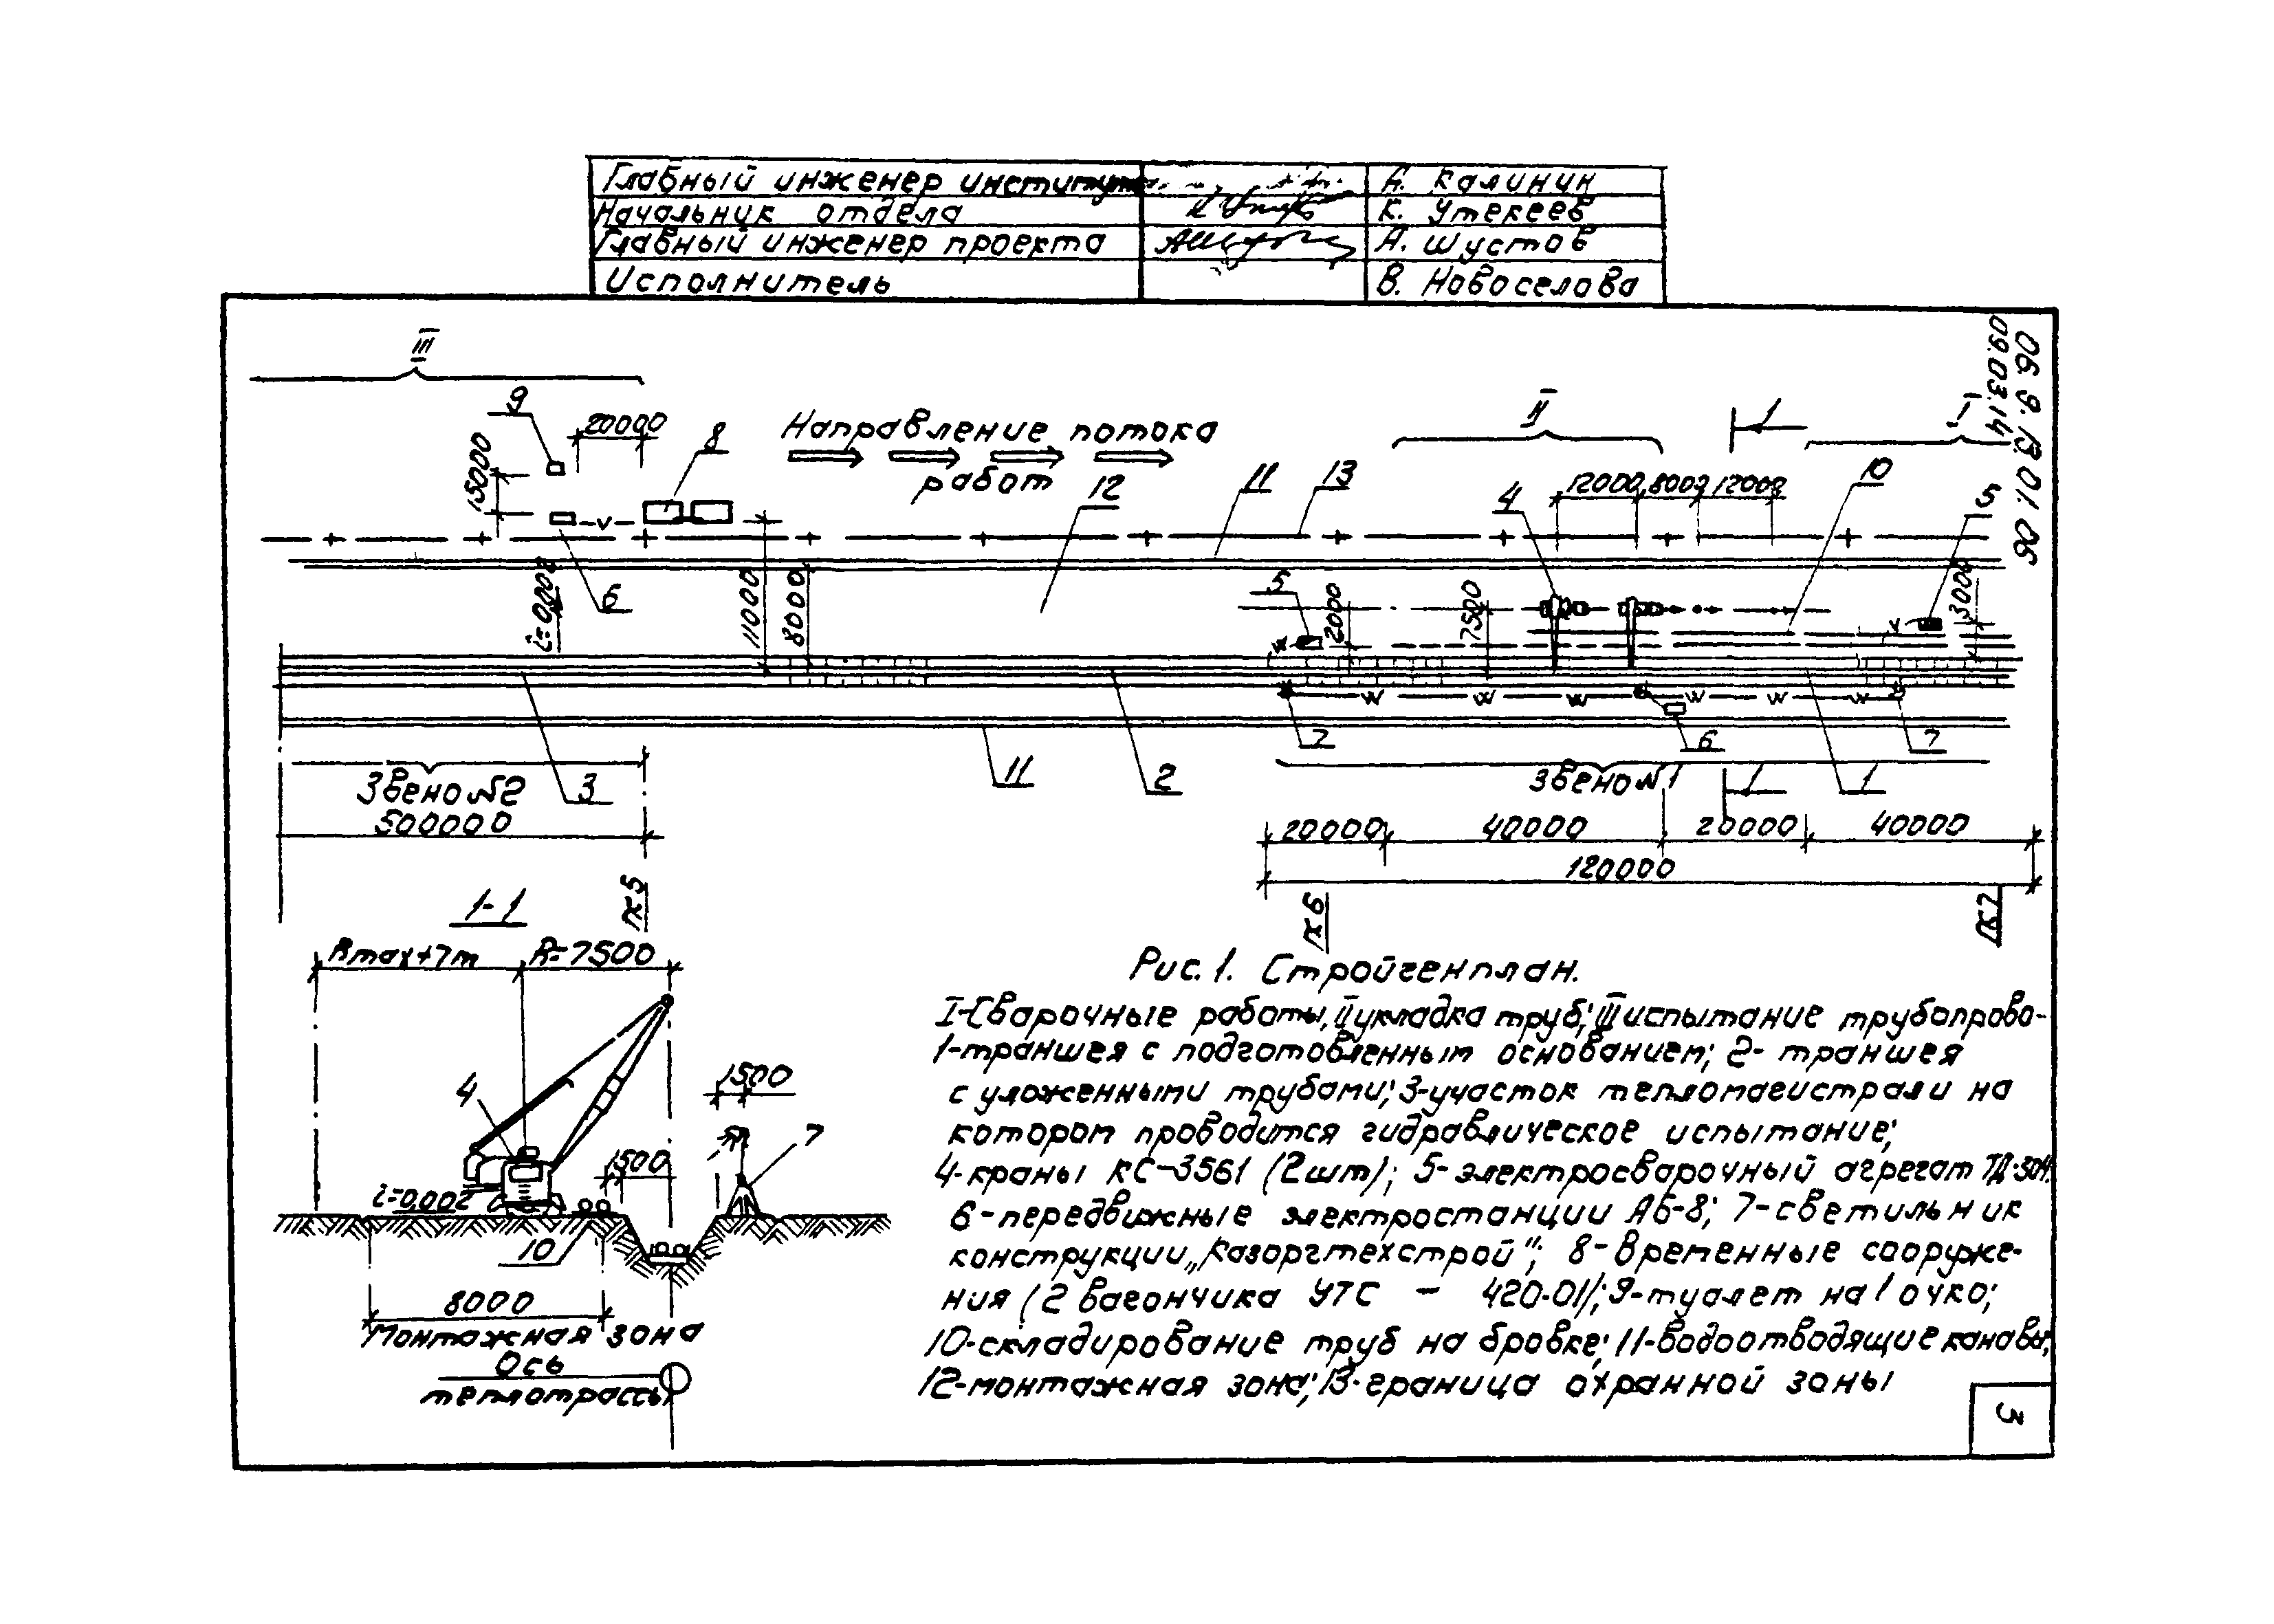 Главный инженер института А. Калинин
Начальник отдела К. Утекеев
Главный инженер проекта А. Шустов
Исполнитель В. Новоселова
06 9. В 01 06
09.03.14
III
9
20000
8
15000
Направление потока
работ
12
11
13
II
1
I
4
12000 8000 12000
10
5
i=0.002
6
11000
8000
5
2000
7500
3000
7
6
7
Звено №2
3
11
2
Звено №1
1
1
500000
20000 40000 20000 40000
120000
пк5
пк6
1-1
Rmax+7m R=7500
4
1500
7
1500
i=0.002
10
8000
Монтажная зона
Ось
теплотрассы
Рис. 1. Стройгенплан.
I-Сварочные работы, II укладка труб; III испытание трубопрово-
1-траншея с подготовленным основанием; 2- траншея
с уложенными трубами; 3-участок тепломагистрали на
котором проводится гидравлическое испытание;
4-краны КС-3561 (2шт); 5-электросварочный агрегат
6-передвижные электростанции АБ-8; 7-светильник
конструкции „Казоргтехстрой"; 8-Временные сооруже-
ния (2 вагончика УТС - 420-01/; 9-туалет на 1 очко;
10-складирование труб на бровке; 11-водоотводящие канавы;
12-монтажная зона; 13-граница охранной зоны
3